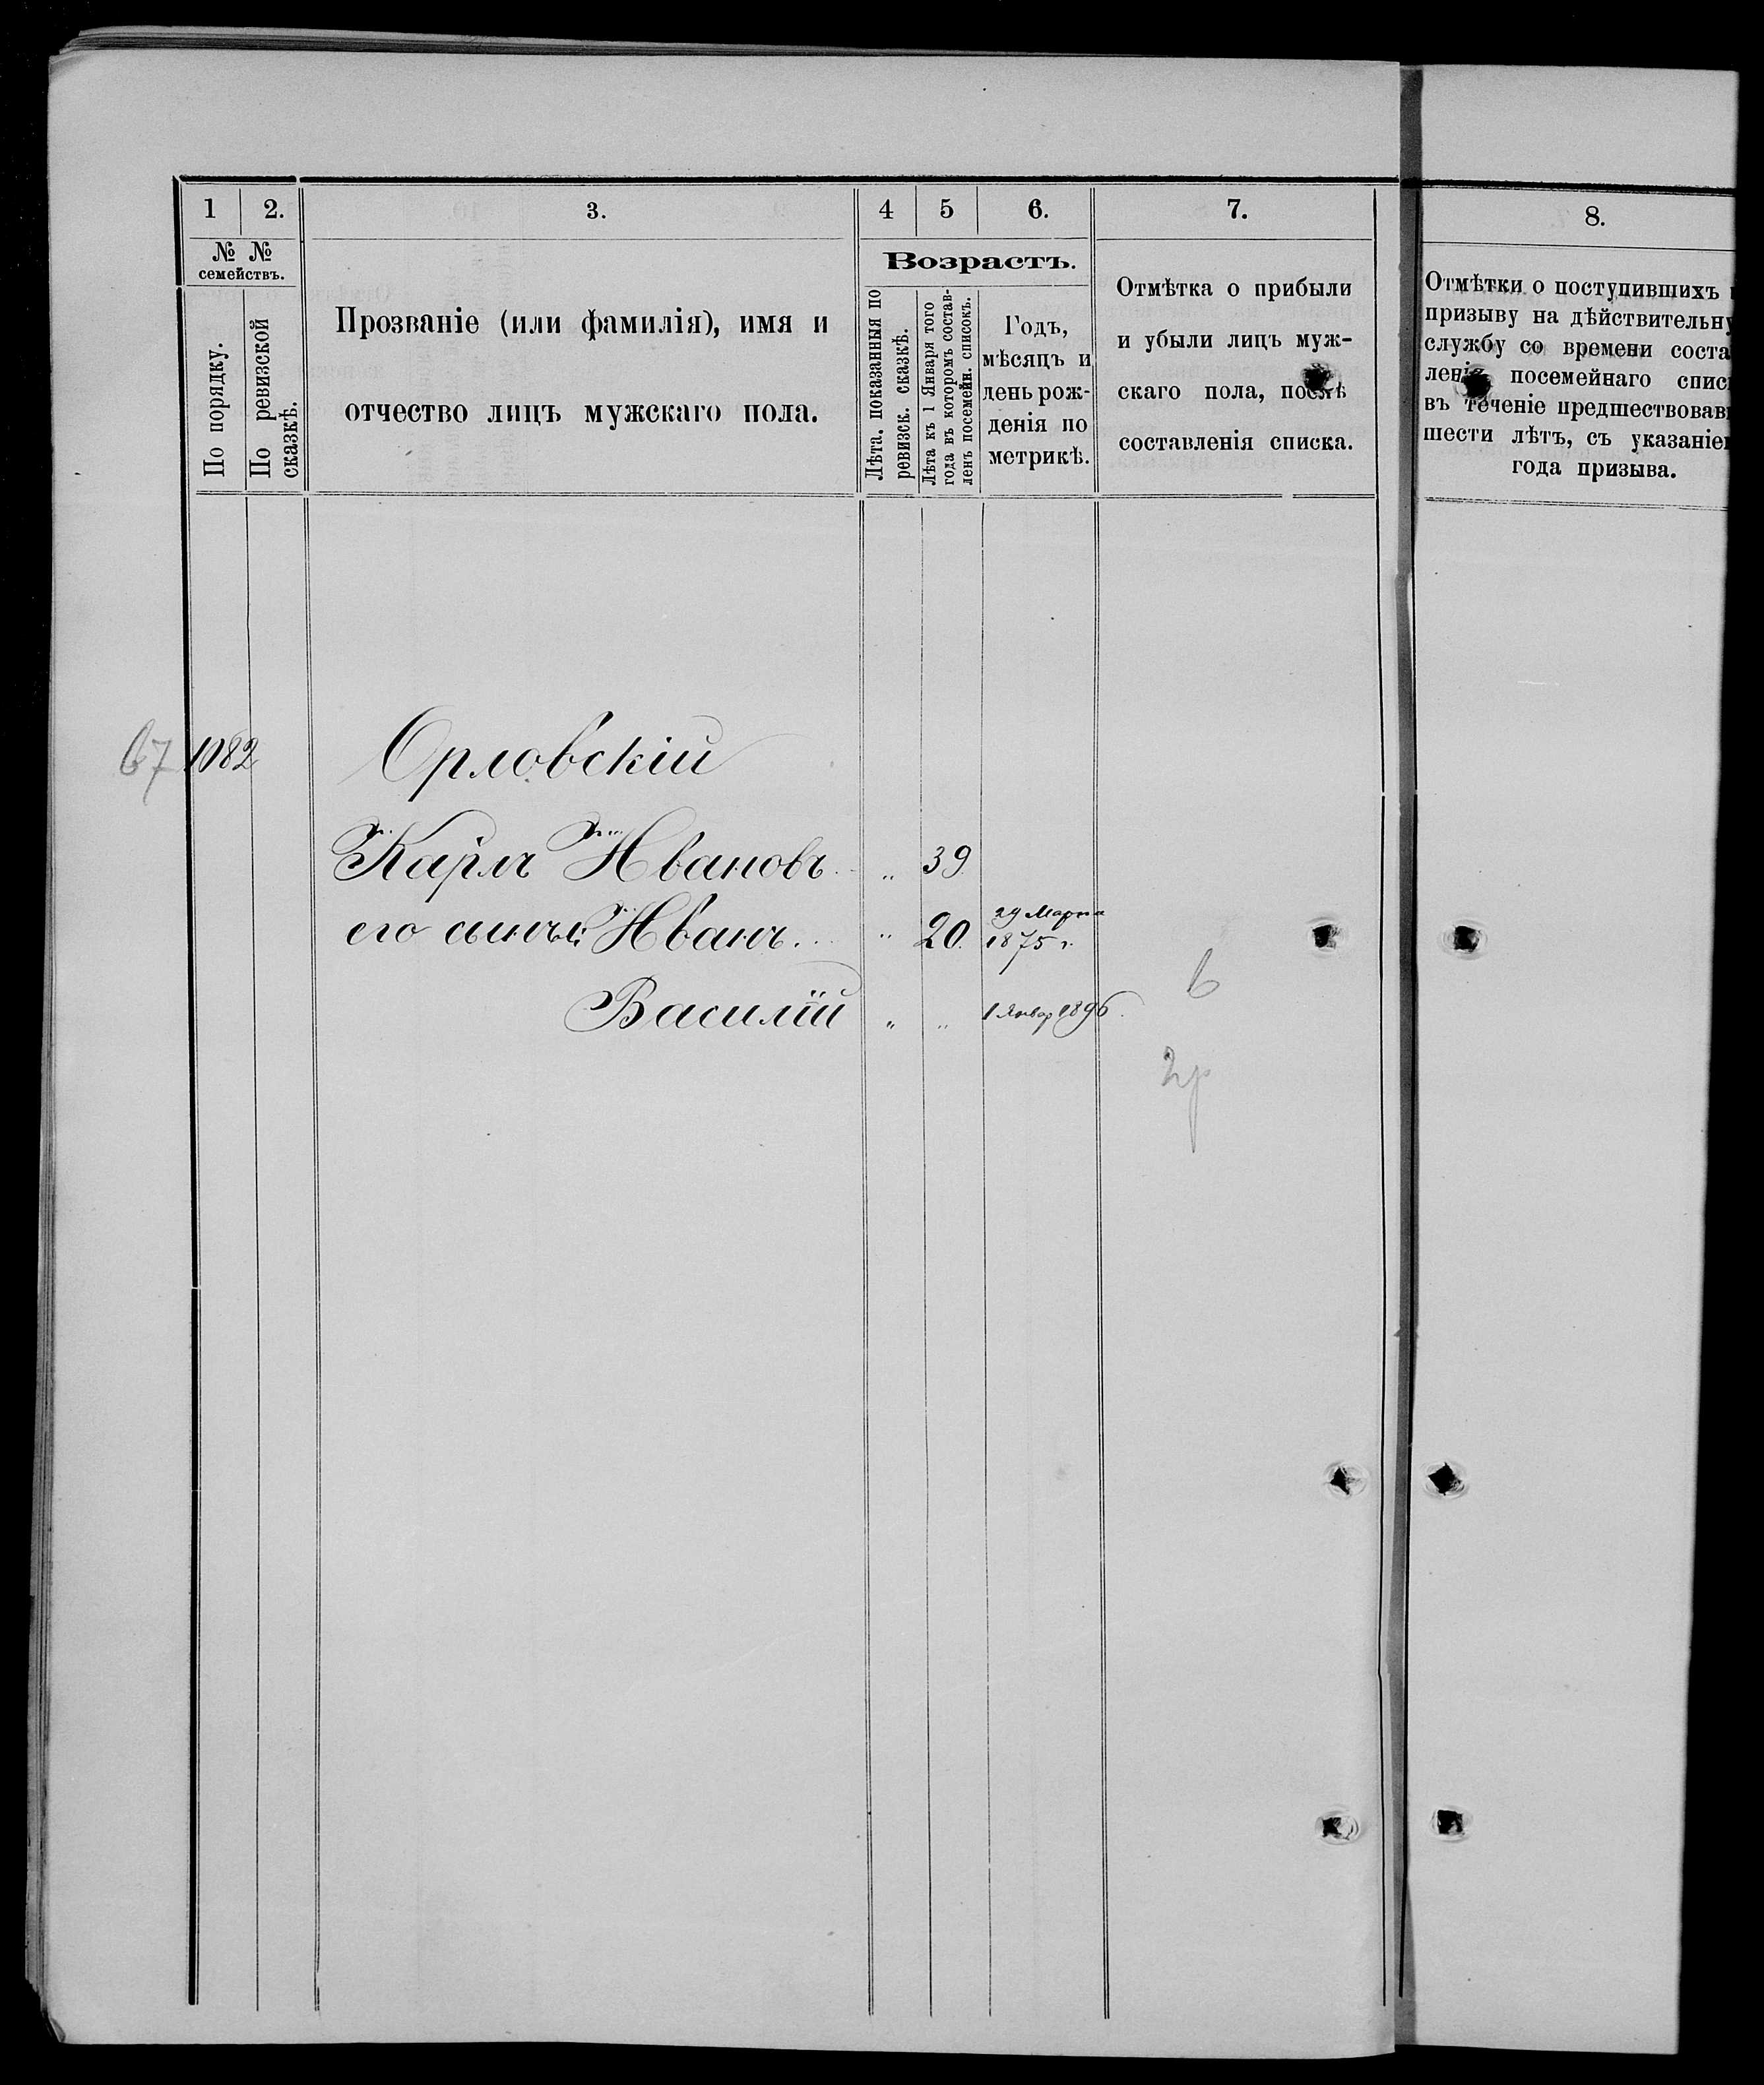 1 2. 3. 4 5 6. 7. 8.
№ №
семействъ.
По порядку.
По ревизской
сказкѣ.
Прозваніе (или фамилія), имя и
отчество лицъ мужскаго пола.
Возрастъ.
Лѣта. показанныя по
ревизск. сказкѣ.
Лѣта къ 1 Января того
года въ которомъ состав-
ленъ посемейн. списокъ.
Годъ,
мѣсяцъ и
день рож-
денія по
метрикѣ.
Отмѣтка о прибыли
и убыли лицъ муж-
скаго пола, послѣ
составленія списка.
Отмѣтки о поступившихъ
призыву на дѣйствительну
службу со времени соста
ленія посемейнаго спис
въ теченіе предшествовав
шести лѣтъ, съ указаніе
года призыва.
67 1082 Орловскій
Карлъ Ивановъ „ 39
его сынъ: Иванъ „ 20. 29 Марта
1875 г.
Василій „ „ 1 Январ 1896.
2р